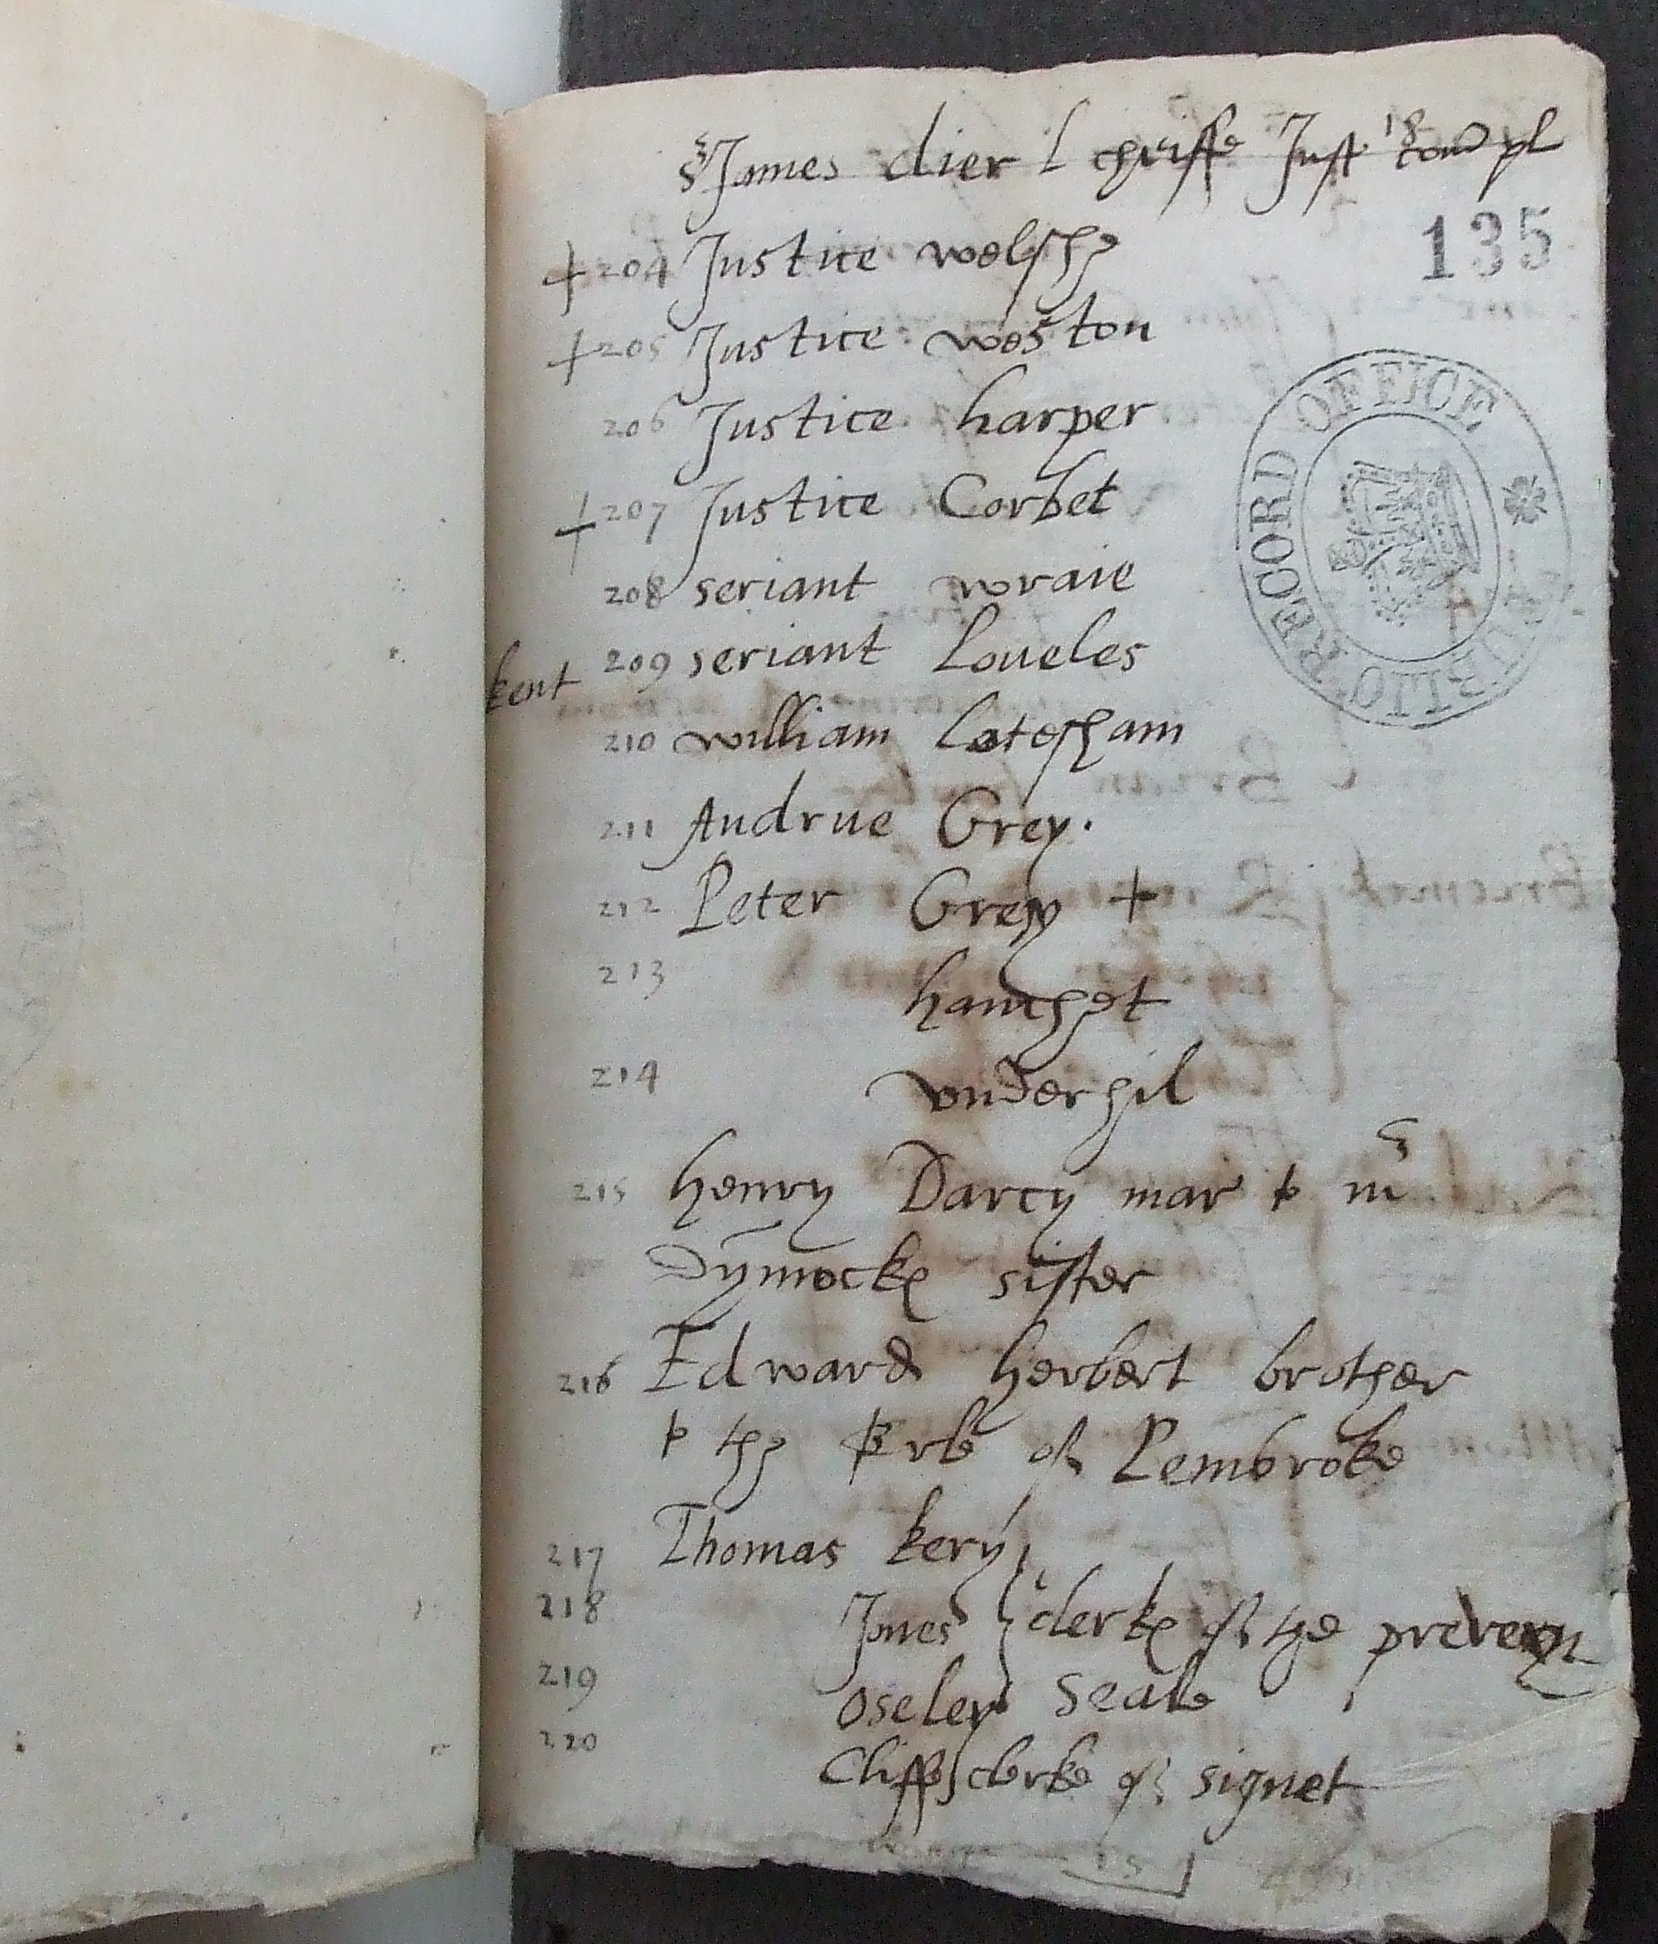 Sr James dier l cheiffe Just 18 com pl
135
+ 204 Justice welshe
+ 205 Justice weston
206 Justice harper
+ 207 Justice Corbet
208 seriant wraie
kent 209 seriant Loueles
210 william latesham
211 Andrue Grey.
212 Peter Grey +
213 hanchet
214 vnderhil
215 henry Darcy mar to mr
Dymocke sister
216 Edward herbert brother
to the Erle of Pembroke
217 Thomas kery
218 Jones clerkes of the preveye
219 oseley Seale
220 Cliffe clerke of signet
PUBLIC RECORD OFFICE
15